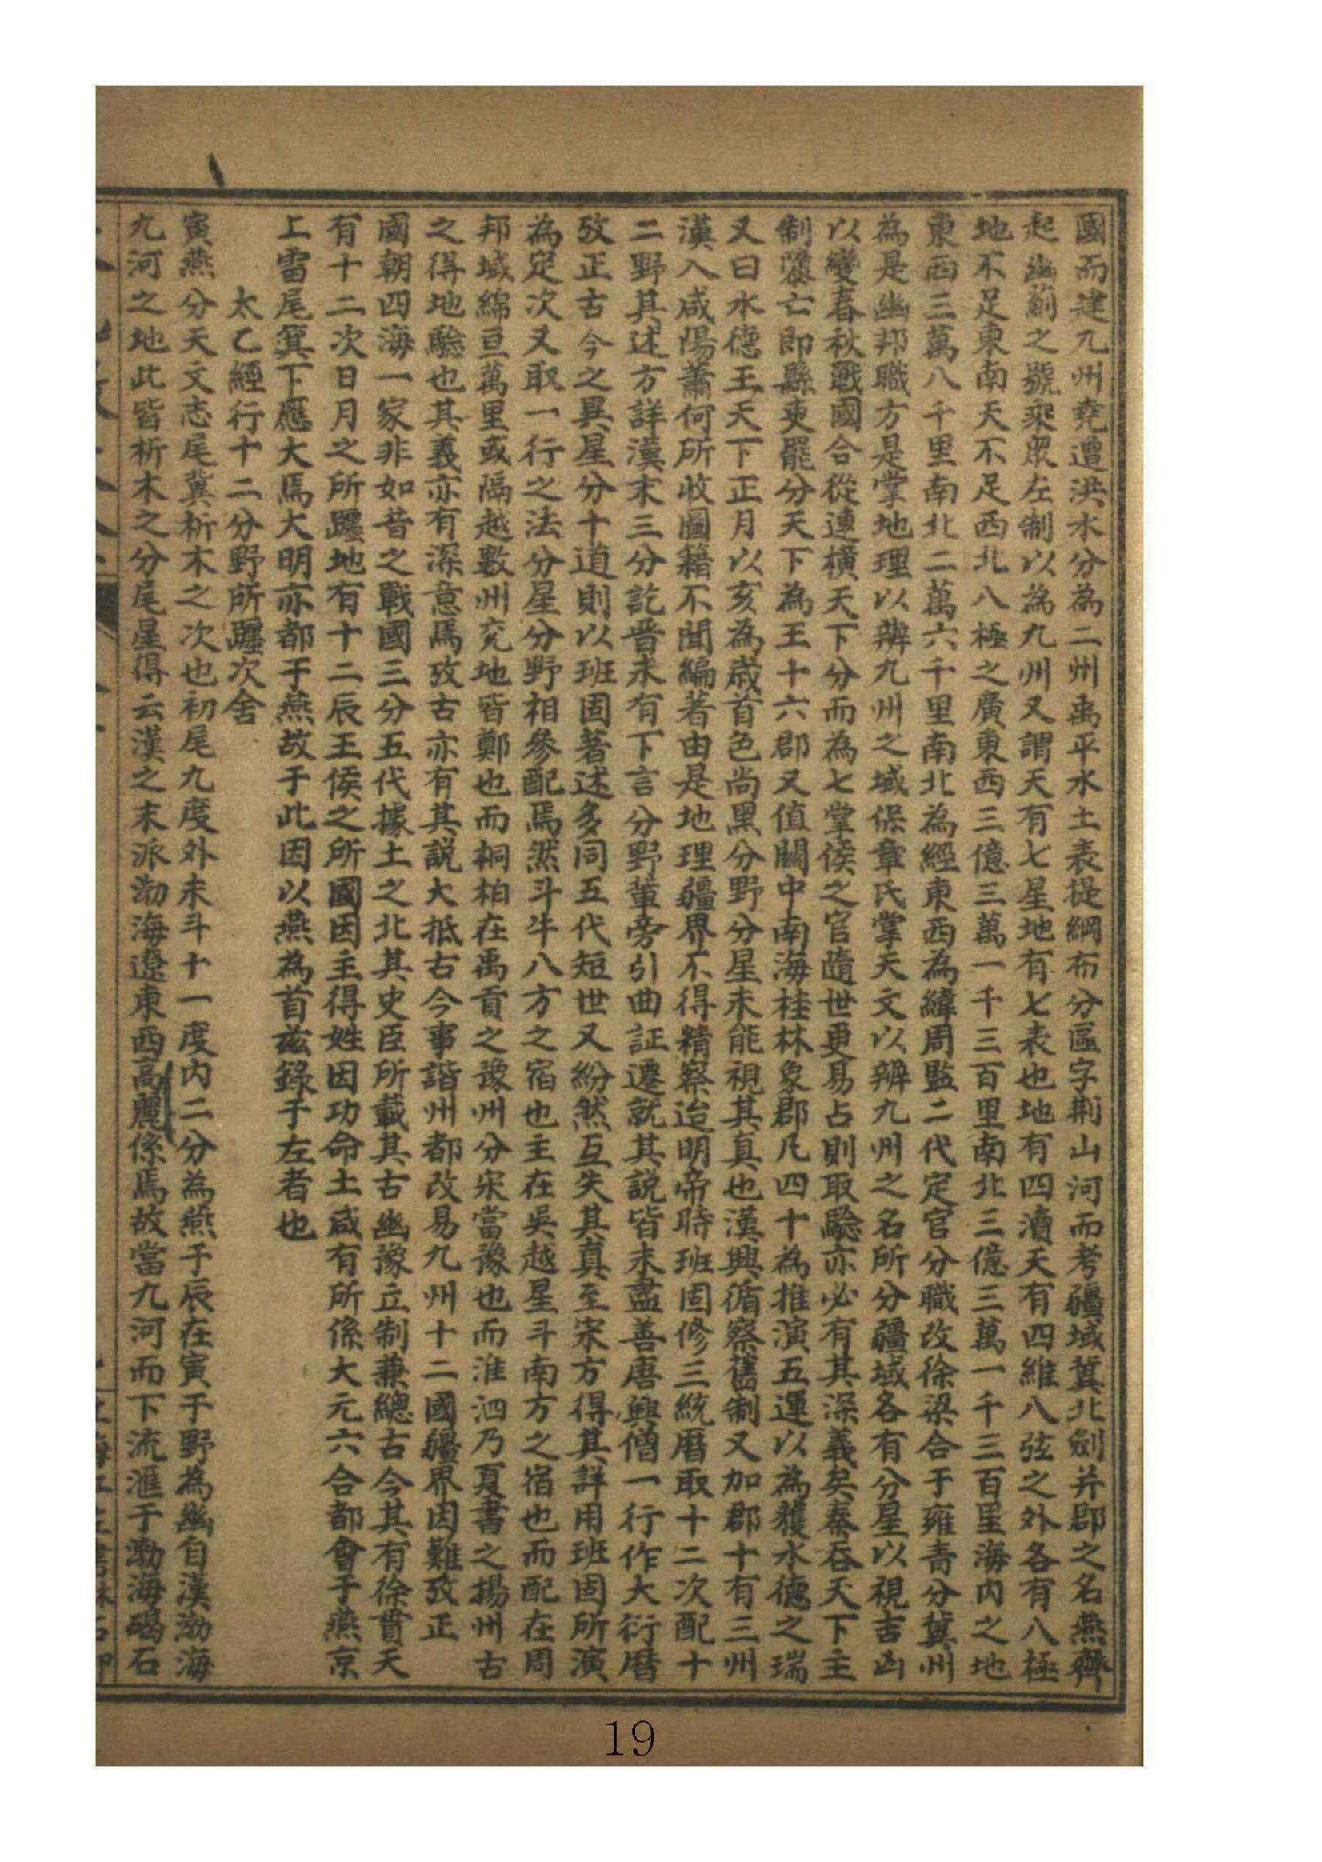 國而建九州堯遭洪水分為二州禹平水土表提綱布分區字荆山河而考疆域冀北劍并郡之名燕齊
起幽薊之號乘眾左制以為九州又謂天有七星地有七表也地有四瀆天有四維八弦之外各有八極
地不足東南天不足西北八極之廣東西三億三萬一千三百里南北三億三萬一千三百里海内之地
東西三萬八千里南北二萬六千里南北為經東西為緯周監二代定官分職改徐梁合于雍青分冀州
為是幽邦職方是掌地理以辨九州之域保章氏掌天文以辨九州之名所分疆域各有分星以視吉凶
以變春秋戰國合從連橫天下分而為七掌侯之官隨世更易占則取驗亦必有其深義矣秦吞天下主
制隳亡即縣吏罷分天下為王十六郡又值關中南海桂林象郡凡四十為推演五運以為獲水德之瑞
又曰水德王天下正月以亥為歲首色尚黑分野分星未能視其真也漢興循察舊制又加郡十有三州
漢入咸陽蕭何所收圖籍不聞編著由是地理疆界不得精察迨明帝時班固修三統曆取十二次配十
二野其述方詳漢末三分訖晉未有下言分野輩旁引曲証遷就其說皆未盡善唐興僧一行作大衍曆
攷正古今之異星分十道則以班固著述多同五代短世又紛然互失其真至宋方得其詳用班固所演
為定次又取一行之法分星分野相參配焉然斗牛八方之宿也主在吳越星斗南方之宿也而配在周
邦域綿亘萬里或隔越數州兖地皆鄭也而桐柏在禹貢之豫州分宋當豫也而淮泗乃夏書之揚州古
之得地驗也其義亦有深意焉攷古亦有其說大抵古今事諧州都改易九州十二國疆界因難攷正
國朝四海一家非如昔之戰國三分五代據土之北其史臣所載其古幽豫立制兼總古今其有徐貫天
有十二次日月之所躔地有十二辰王侯之所國因主得姓因功命土咸有所係大元六合都會于燕京
上雷尾箕下應大焉大明亦都于燕故于此因以燕為首兹錄于左者也
太乙經行十二分野所躔次舍
寅燕分天文志尾冀析木之次也初尾九度外未斗十一度内二分為燕于辰在寅于野為幽自漢渤海
九河之地此皆析木之分尾星得云漢之末派渤海遼東西高麗係焉故當九河而下流滙于渤海碣石
19